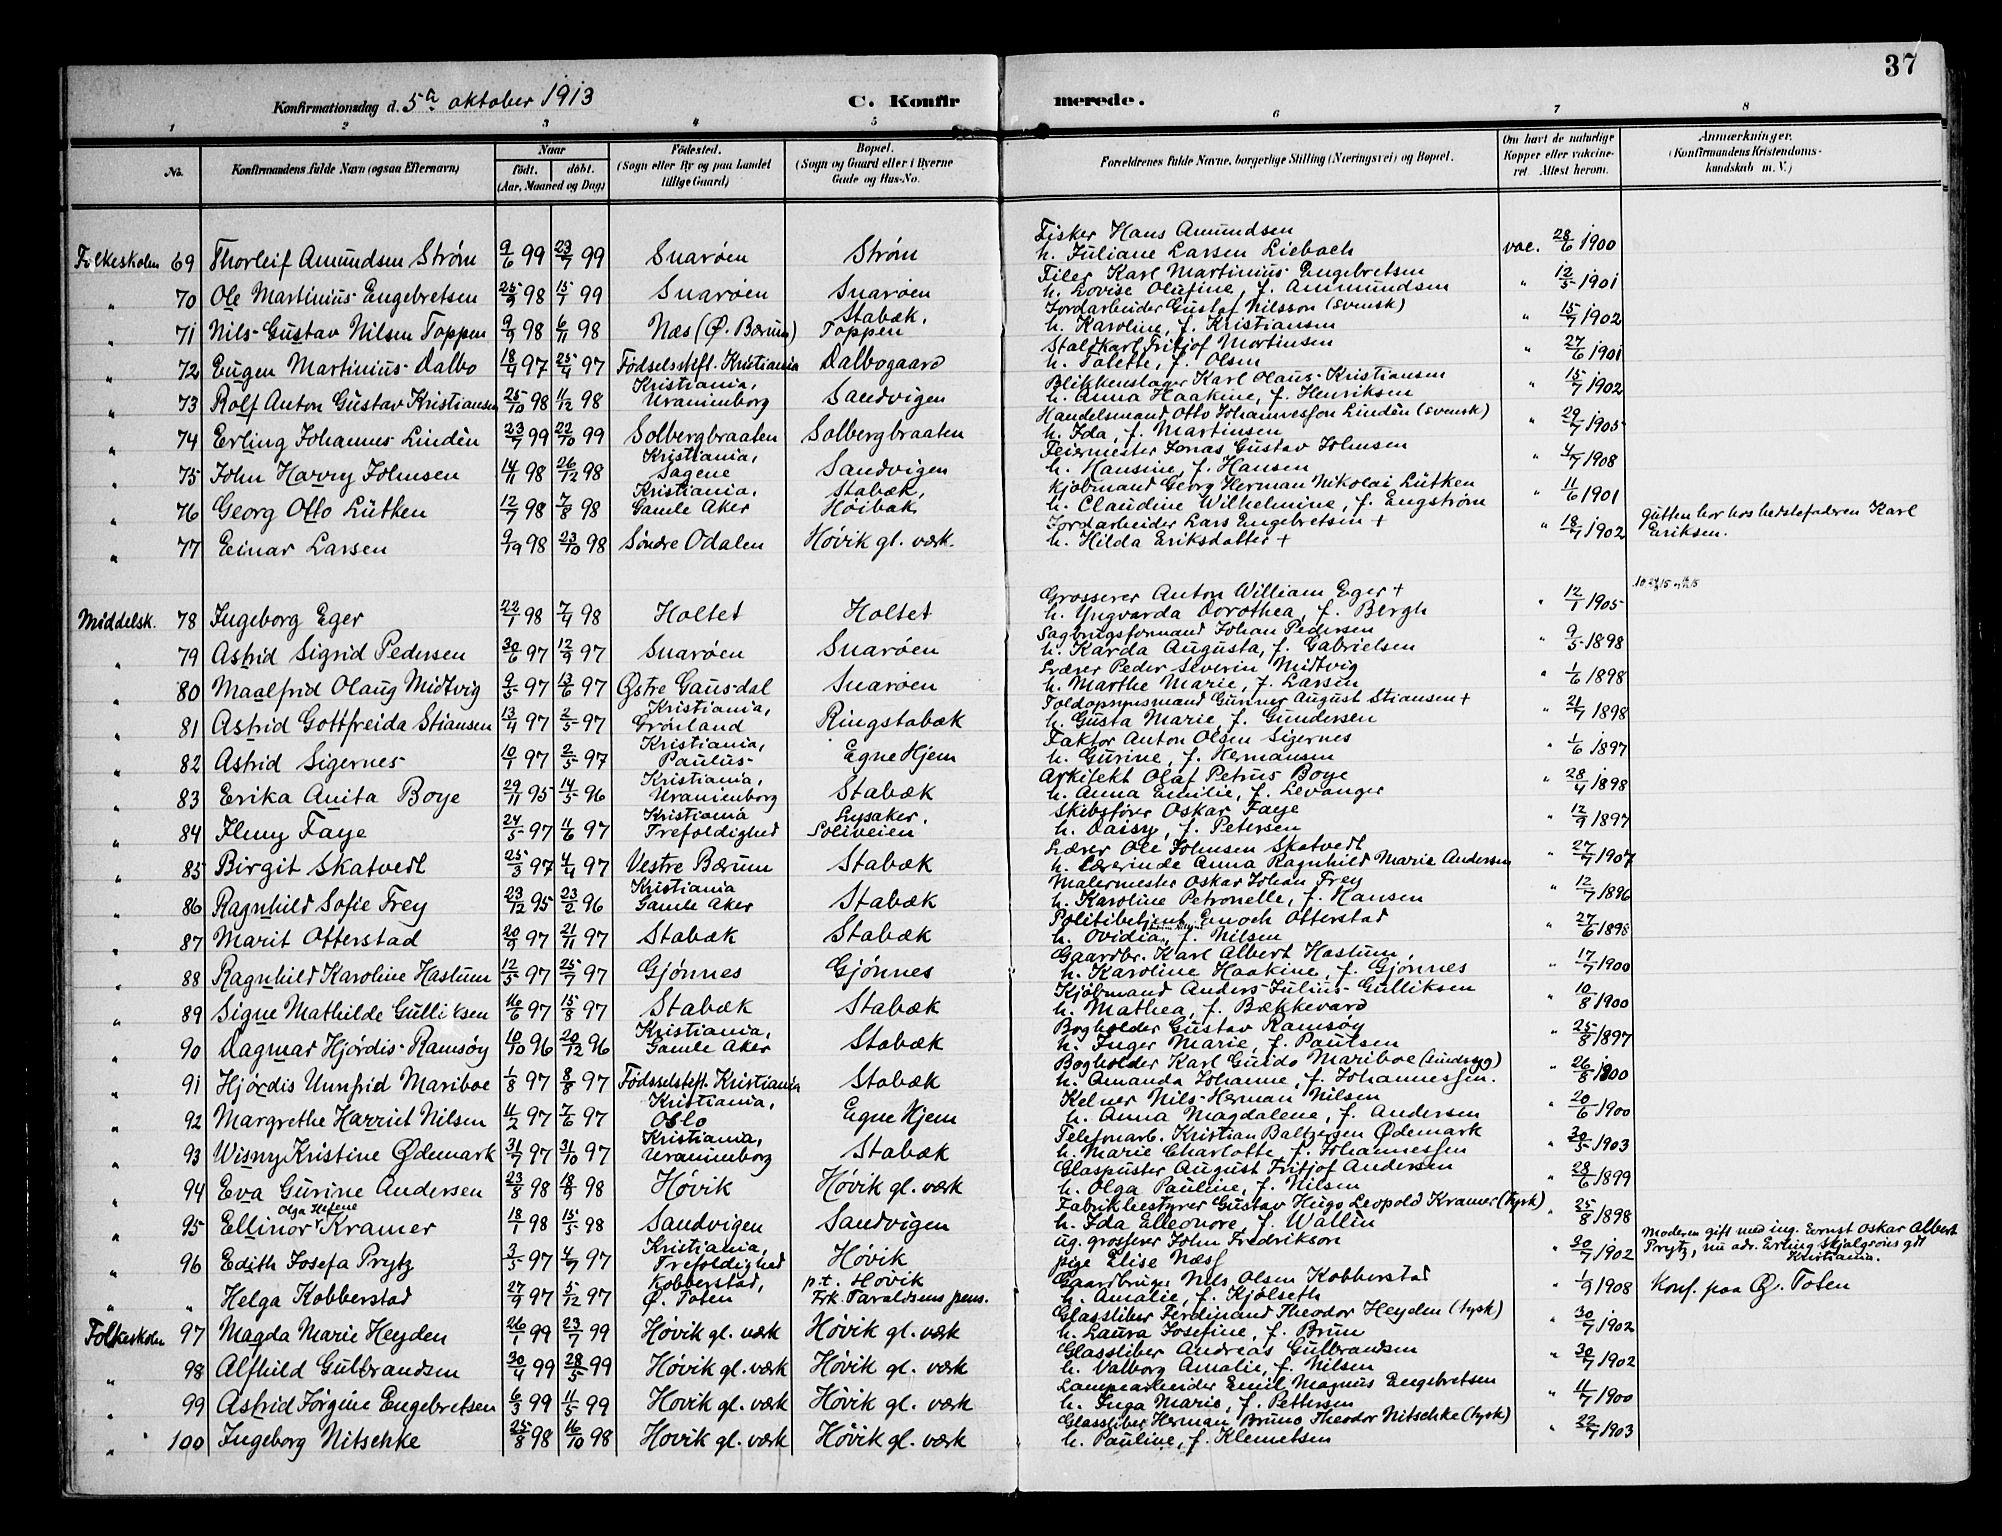 37
Konfirmationsdag d. 5te oktober 1913 C. Konfir merede.
1 2 3 4 5 6 7 8
No. Konfirmandens fulde Navn (ogsaa Efternavn) Naar født. døbt. (Aar, Maaned og Dag) Fødested. (Sogn eller By og paa Landet tillige Gaard) Bopæl. (Sogn og Gaard eller i Byerne Gade og Hus-No. Forældrenes fulde Navne, borgerlige Stilling (Næringsvei) og Bopæl. Om havt de naturlige Kopper eller vakcineret Attest herom. Anmærkninger. (Konfirmandens Kristendomskundskab m. V.)
Folkeskolen 69 Thorleif Amundsen Strøm 9/6 99 23/7 99 Snarøen Strøm Fisker Hans Amundsen h. Juliane Larsen Liebach vac. 28/6 1900
" 70 Ole Martinius Engebretsen 25/9 98 15/1 99 Snarøen Snarøen Filer Karl Martinius Engebretsen h. Lovise Olufine, f. Ammundsen " 12/5 1901
" 71 Nils Gustav Nilsen Toppen 9/9 98 6/11 98 Næs (Ø. Bærum) Stabæk, Toppen Jordarbeider Gustaf Nilsson (svensk) h. Karoline, f. Kristiansen " 15/7 1902
" 72 Eugen Martinius Dalbo 18/4 97 25/4 97 Fødselsstift. Kristiania Dalbogaard Staldkarl Fritjof Mortinsen h. Talette, f. Olsen " 27/6 1901
" 73 Rolf Anton Gustav Kristiansen 25/10 98 11/12 98 Kristiania, Uranienborg Sandvigen Blikkenslager Karl Olaus Kristiansen h. Anna Haakine, f. Henriksen " 15/7 1902
" 74 Erling Johannes Lindén 23/7 99 22/10 99 Solbergbraaten Solbergbraaten Handelsmand Otto Johannesson Lindén (svensk) h. Ida, f. Martinsen " 29/7 1905
" 75 John Harry Johnsen 14/11 98 26/12 98 Kristiania, Sagene Sandvigen Feiermester Jonas Gustav Johnsen h. Hansine, f. Hansen " 4/7 1908
" 76 Georg Otto Lütken 12/7 98 7/8 98 Kristiania. Gamle Aker Stabæk, Høibak Kjøbmand Georg Herman Nikolai Lütken h. Claudine Wilhelmine, f. Engstrøm " 11/6 1901
" 77 Einar Larsen 98 23/10 98 Søndre Odalen Høvik gl. værk. Jordarbeider Lars Engebretsen + h. Hilda Eriksdatter + " 18/7 1902 gutten bor hos bestefaderen Karl Eriksen.
Middelsk. 78 Ingeborg Eger 22/1 98 7/4 98 Holtet Holtet Grosserer Anton William Eger + h. Yngvarda Dorothea, f. Bergh " 12/1 1905
" 79 Astrid Sigrid Pedersen 30/6 97 12/9 97 Snarøen Snarøen Sagbrugsformand Johan Pedersen h. Karda Augusta, f. Gabrielsen " 9/5 1898
" 80 Maalfrid Olaug Midtvig 9/5 97 13/6 97 Østre Gausdal Snarøen Lærer Peder Severin Midtvig h. Marthe Marie, f. Larsen " 1/6 1898
" 81 Astrid Gottfreida Stiansen 13/4 97 2/5 97 Kristiania, Grønland Ringstabæk Toldopsynsmand Gunner August Stiansen + h. Gusta Marie, f. Gundersen " 21/7 1898
" 82 Astrid Sigernes 10/1 97 2/5 97 Kristiania, Paulus Egne Hjem Faktor Anton Olsen Sigernes h. Gurine, f. Hermansen " 1/6 1897
" 83 Erika Anita Boye 29/11 95 14/5 96 Kristiania, Uranienborg Stabæk Arkitekt Olaf Petrus Boye h. Anna Emilie, f. Levanger " 28/4 1898
" 84 Jenny Faye 24/5 97 11/6 97 Kristiania Trefoldighed Lysaker. Soliveien Skibsfører Oskar Faye h. Daisy, f. Petersen " 12/9 1897
" 85 Birgit Skatvedt 25/3 97 4/4 97 Vestre Bærum Stabæk Lærer Ole Johnsen Skatvedt h. Lærerinde Anna Ragnhild Marie Andersen " 27/7 1907
" 86 Ragnhild Sofie Frey 23/12 95 23/2 96 Kristiania Gamle Aker Stabæk Malermester Oskar Johan Frey h. Karoline Petronelle, f. Hansen " 12/7 1896
" 87 Marit Otterstad 20/9 97 21/11 97 Stabæk Stabæk Politibetjent Enoch Otterstad h. Ovidia, f. Nilsen " 27/6 1898
" 88 Ragnhild Karoline Haslum 12/5 97 25/7 97 Gjønnes Gjønnes Gaardbr. Karl Albert Haslum, h. Karoline Haakine, f. Gjønnes " 17/7 1900
" 89 Signe Mathilde Gulliksen 16/6 97 15/8 97 Stabæk Stabæk Kjøbmand Anders Julius Gulliksen h. Mathea, f. Bækkevard " 10/8 1900
" 90 Dagmar Hjørdis Ramsøy 10/10 96 20/12 96 Kristiania, Gamle Aker Stabæk Bogholder Gustav Ramsøy h. Inger Marie, f. Paulsen " 25/8 1897
" 91 Hjørdis Unnfrid Mariboe 1/8 97 8/8 97 Fødselsstift. Kristiania Stabæk Bogholder Karl Guido Mariboe (sindsyg) h. Amanda Johanne, f. Johannessen. " 26/8 1900
" 92 Margrethe Harriet Nilsen 11/2 97 7/6 97 Kristiania, Oslo Egne Hjem Kelner Nils Herman Nilsen h. Anna Magdalene, f. Andersen " 20/6 1900
" 93 Wisny Kristine Ødemark 31/7 97 31/10 97 Kristiania, Uranienborg Stabæk Telefonarb. Kristian Baltzersen Ødemark h. Marie Charlotte, f. Johannessen " 30/5 1903
" 94 Eva Gurine Andersen 23/8 98 18/9 98 Høvik Høvik gl. værk Glaspuster August Fritjof Andersen h. Olga Pauline, f. Nilsen " 28/6 1899
" 95 Ellinor Olga Helene Kramer 18/1 98 15/5 98 Sandvigen Sandvigen Fabrikbestyrer Gustav Hugo Leopold Kramer (tysk) h. Ida Elleonore, f. Wallin " 25/8 1898
" 96 Edith Josefa Prytz 3/5 97 4/7 97 Kristiania, Trefoldighed Høvik ug. grosserer John Fredrikson pige Elise Næss " 30/7 1902 Moderen gift med ing. Ernst Oskar Albert Prytz, nu adr. Erling Skjalgsøns gt Kristiania.
" " Helga Kobberstad 27/9 97 5/12 97 Kobberstad, Ø. Toten p.t. Høvik Frk. Taraldsens pens. Gaardbruger Nils Olsen Kobberstad h. Amalie, f. Kjølseth " 1/9 1908 Konf. paa Ø. Toten
Folkeskolen 97 Magda Marie Heyden 26/1 99 23/7 99 Høvik gl. værk Høvik gl. værk Glassliber Ferdinand Theodor Heyden (tysk) h. Laura Josefine, f. Brun " 30/7 1902
" 98 Alfhild Gulbrandsen 30/4 99 28/5 99 Høvik gl. værk Høvik gl. værk Glassliber Andreas Gulbrandsen h. Valborg Amalie, f. Nilsen " 30/7 1902
" 99 Astrid Jørgine Engebretsen 6/3 99 11/5 99 Høvik gl. værk Høvik gl. værk Lampearbeider Emil Magnus Engebretsen h. Inga Marie, f. Pettersen " 11/7 1900
" 100 Ingeborg Nitschke 25/8 98 16/10 98 Høvik gl. værk Høvik gl. værk Glassliber Herman Bruno Theodor Nitschke (tysk) h. Pauline, f. Klemetsen " 22/7 1903